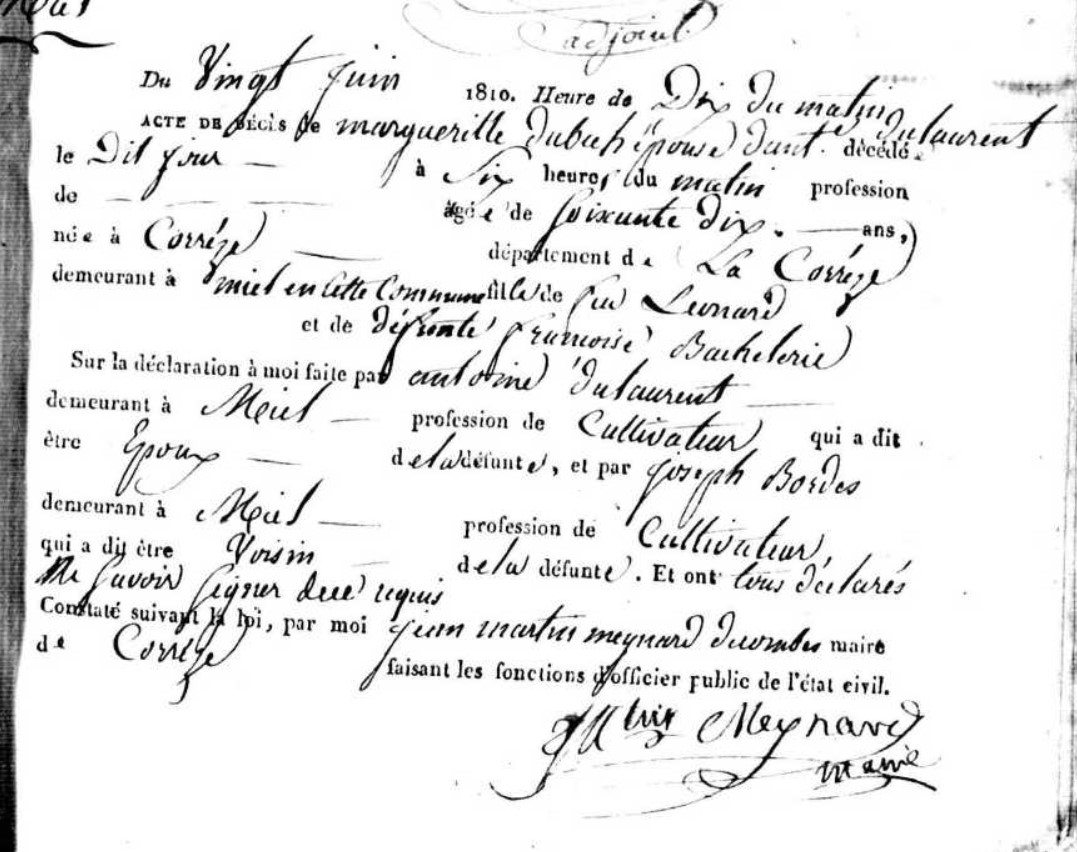 adjoint.
Du Vingt juin 1810. Heure de Dix du matin
ACTE DE DÉCÈS de margueritte Dubach épouse d'ant. dulaurent décédée
le Dit jour — à Six heures du matin profession
de — âgée de Soixante dix. — ans,
née à Corréze — département de La Corréze
demeurant à miel en cette Commune fille de feu Leonard
et de défunte françoise Bachelerie
Sur la déclaration à moi faite par antoine dulaurent —
demeurant à Miel — profession de Cultivateur qui a dit
être Epoux — de la défunte, et par joseph Bordes
demeurant à Miel — profession de Cultivateur,
qui a dit être Voisin — de la défunte. Et ont tous déclarés
Ne Savoir Signer de ce requis
Constaté suivant la loi, par moi jean martin meynard ducombes maire
de Corréze faisant les fonctions d'officier public de l'état civil.
Meynard
maire